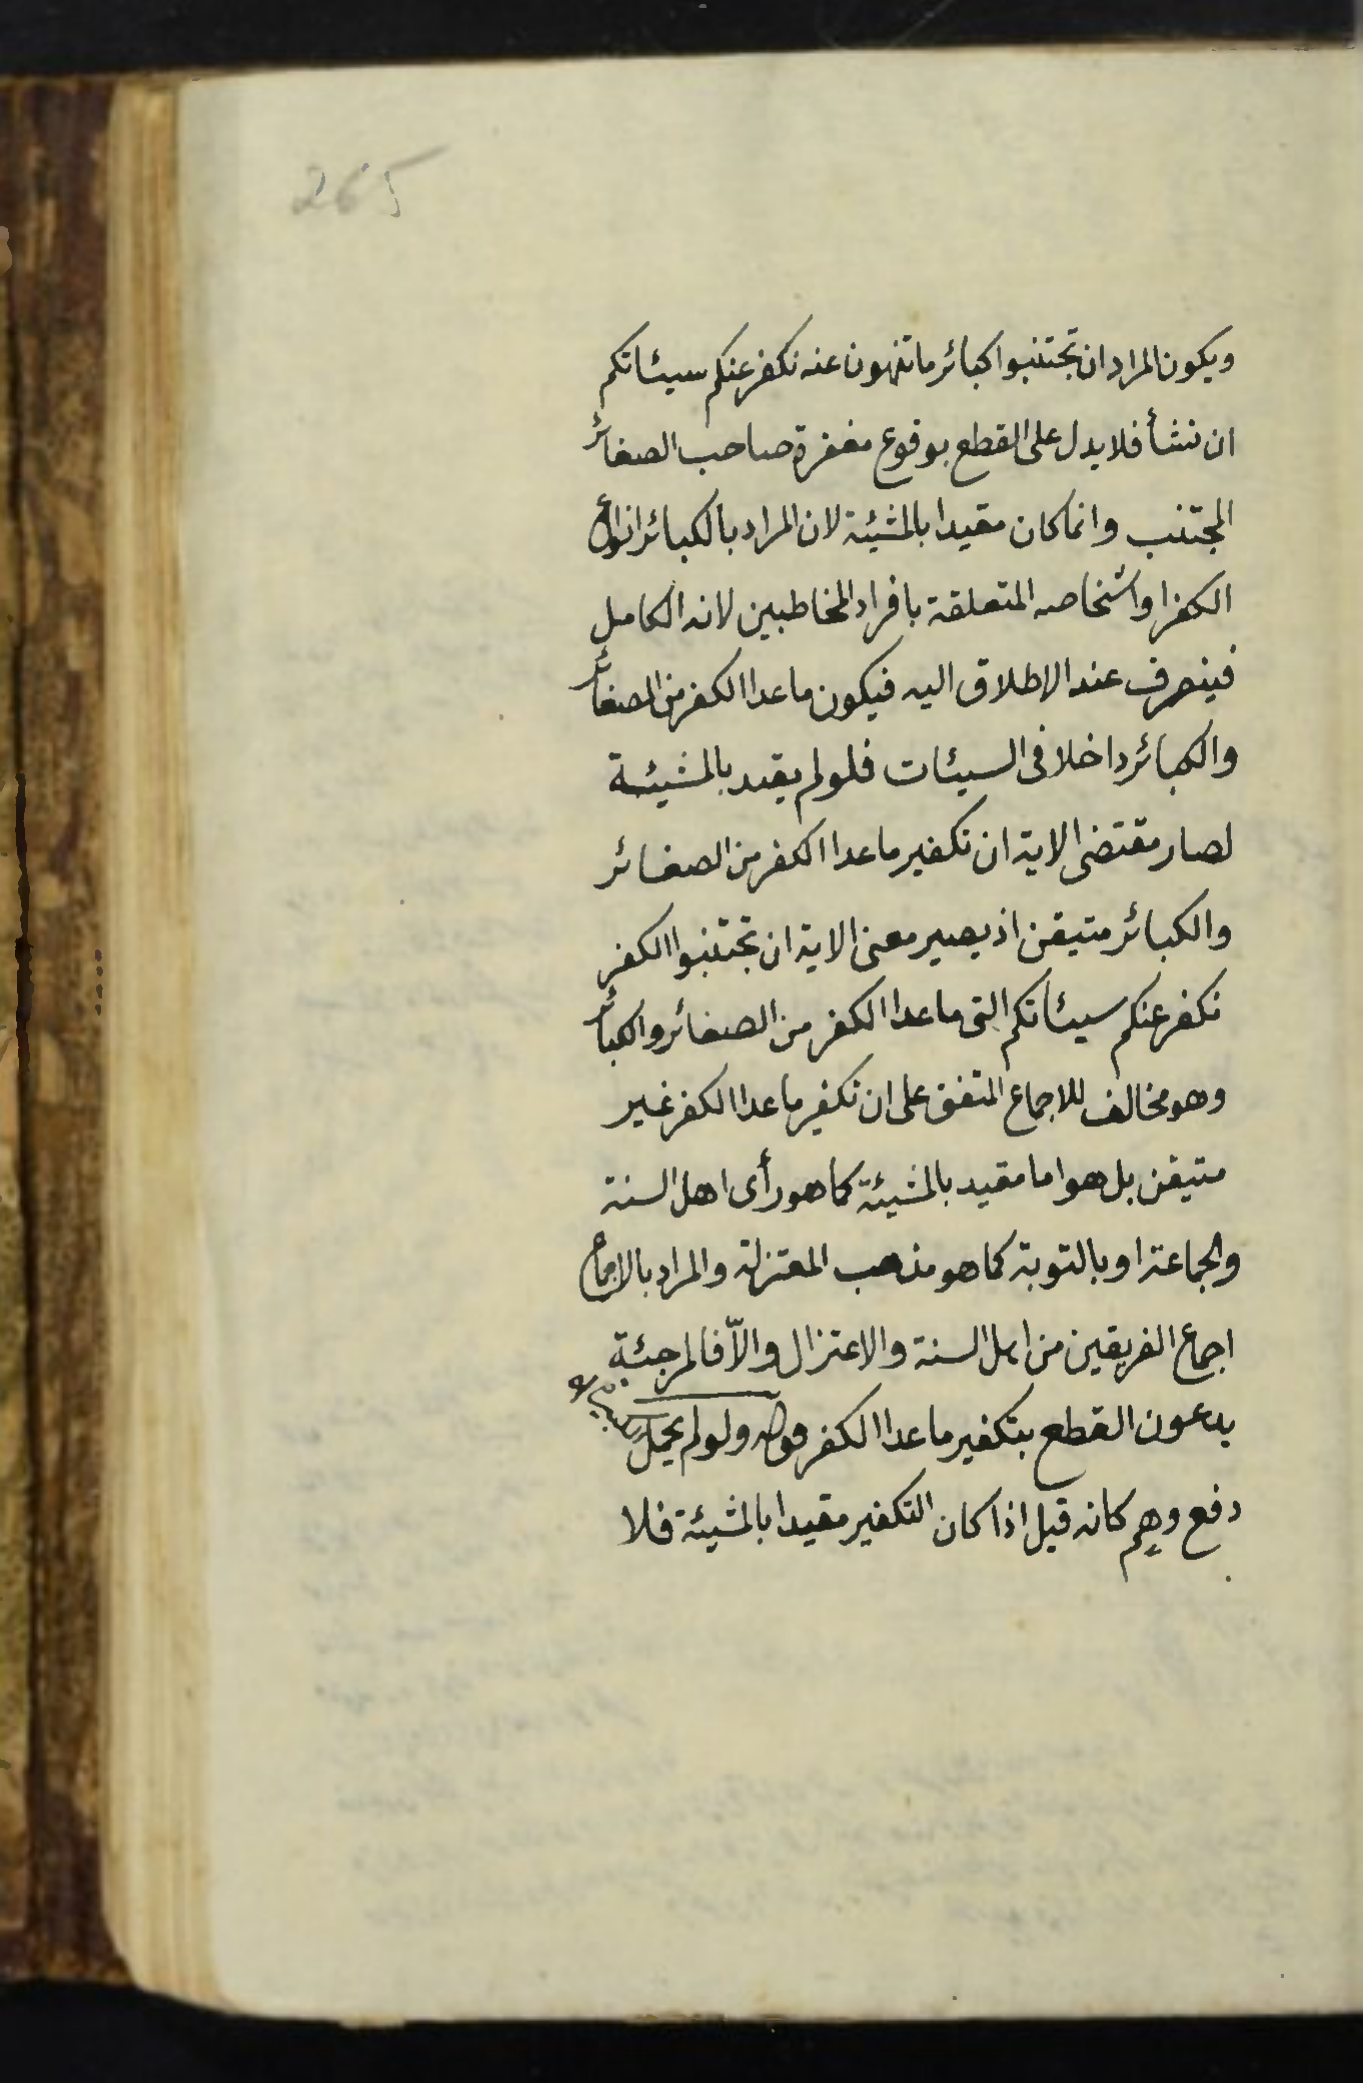 265
ويكون المراد ان تجتنبوا كبائر ما تنهون عنه نكفر عنكم سيئاتكم
ان نشأ فلا يدل على القطع بوقوع مغفرة صاحب الصغائر
المجتنب وانما كان مقيدا بالمشيئة لان المراد بالكبائر انواع
الكفر او اشخاصه المتعلقة بافراد المخاطبين لانه الكامل
فينصرف عند الاطلاق اليه فيكون ما عدا الكفر من الصغائر
والكبائر داخلا فى السيئات فلو لم يقيد بالمشيئة
لصار مقتضى الاية ان تكفير ما عدا الكفر من الصغائر
والكبائر متيقن اذ يصير معنى الاية ان تجتنبوا الكفر
نكفر عنكم سيئاتكم التى ما عدا الكفر من الصغائر والكبائر
وهو مخالف للاجماع المتفق على ان تكفير ما عدا الكفر غير
متيقن بل هو اما مقيد بالمشيئة كما هو رأى اهل السنة
والجماعة او بالتوبة كما هو مذهب المعتزلة والمراد بالاجماع
اجماع الفريقين من اهل السنة والاعتزال والاّ فالمرجئة
يدعون القطع بتكفير ما عدا الكفر قوله ولو لم يحمل
دفع وهم كانه قيل اذا كان التكفير مقيدا بالمشيئة فلا